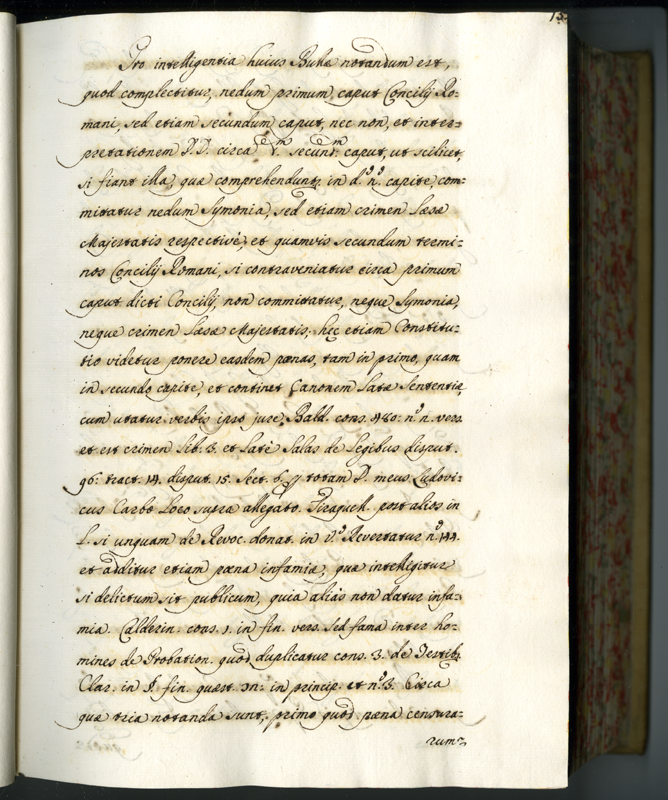 13.
Pro intelligentia huius Bullæ notandum est,
quod complectitur, nedum primum, caput Concilij Ro-
mani, sed etiam secundum caput, nec non, et inter=
pretationem D.D. circa secund. caput, ut scilicet,
si fiant illa, quæ comprehendunt. in d.º n.º capite, com=
mittatur nedum Symonia, sed etiam crimen Læsæ
Majestatis respectivè, et quamvis secundum termi=
nos Concilij Romani, si contraveniatur circa primum
caput dicti Concilij, non committatur, neque Symonia,
neque crimen Læsæ Majestatis; hęc etiam Constitu=
tio videtur ponere easdem pœnas, tam in primo, quam
in secundo capite, et continet Canonem Latæ Sententiæ,
cum utatur verbis ipso jure, Bald. cons. 480. n.º n. vers.
et est crimen lib. 3. et Latè Salas de Legibus disput.
96. tract. 14. disput. 15. Sect. 6. totam D. meus Ludovi=
cus Carbo Loco supra allegato. Tiraquell. post alios in
L. si unquam de Revoc. donat. in v.º Revertatur n.º 144.
et additur etiam pœna infamiæ, quæ intelligitur
si delictum sit publicum, quia aliàs non datur infa=
mia. Calderin. cons. 1. in fin. vers. sed fama inter ho=
mines de Probation. quod duplicatur cons. 3. de Testib.
Clar. in §. fin. quæst. in princip. et n.º 3. Circa
quæ tria notanda sunt, primo quod pœna censura=
rum